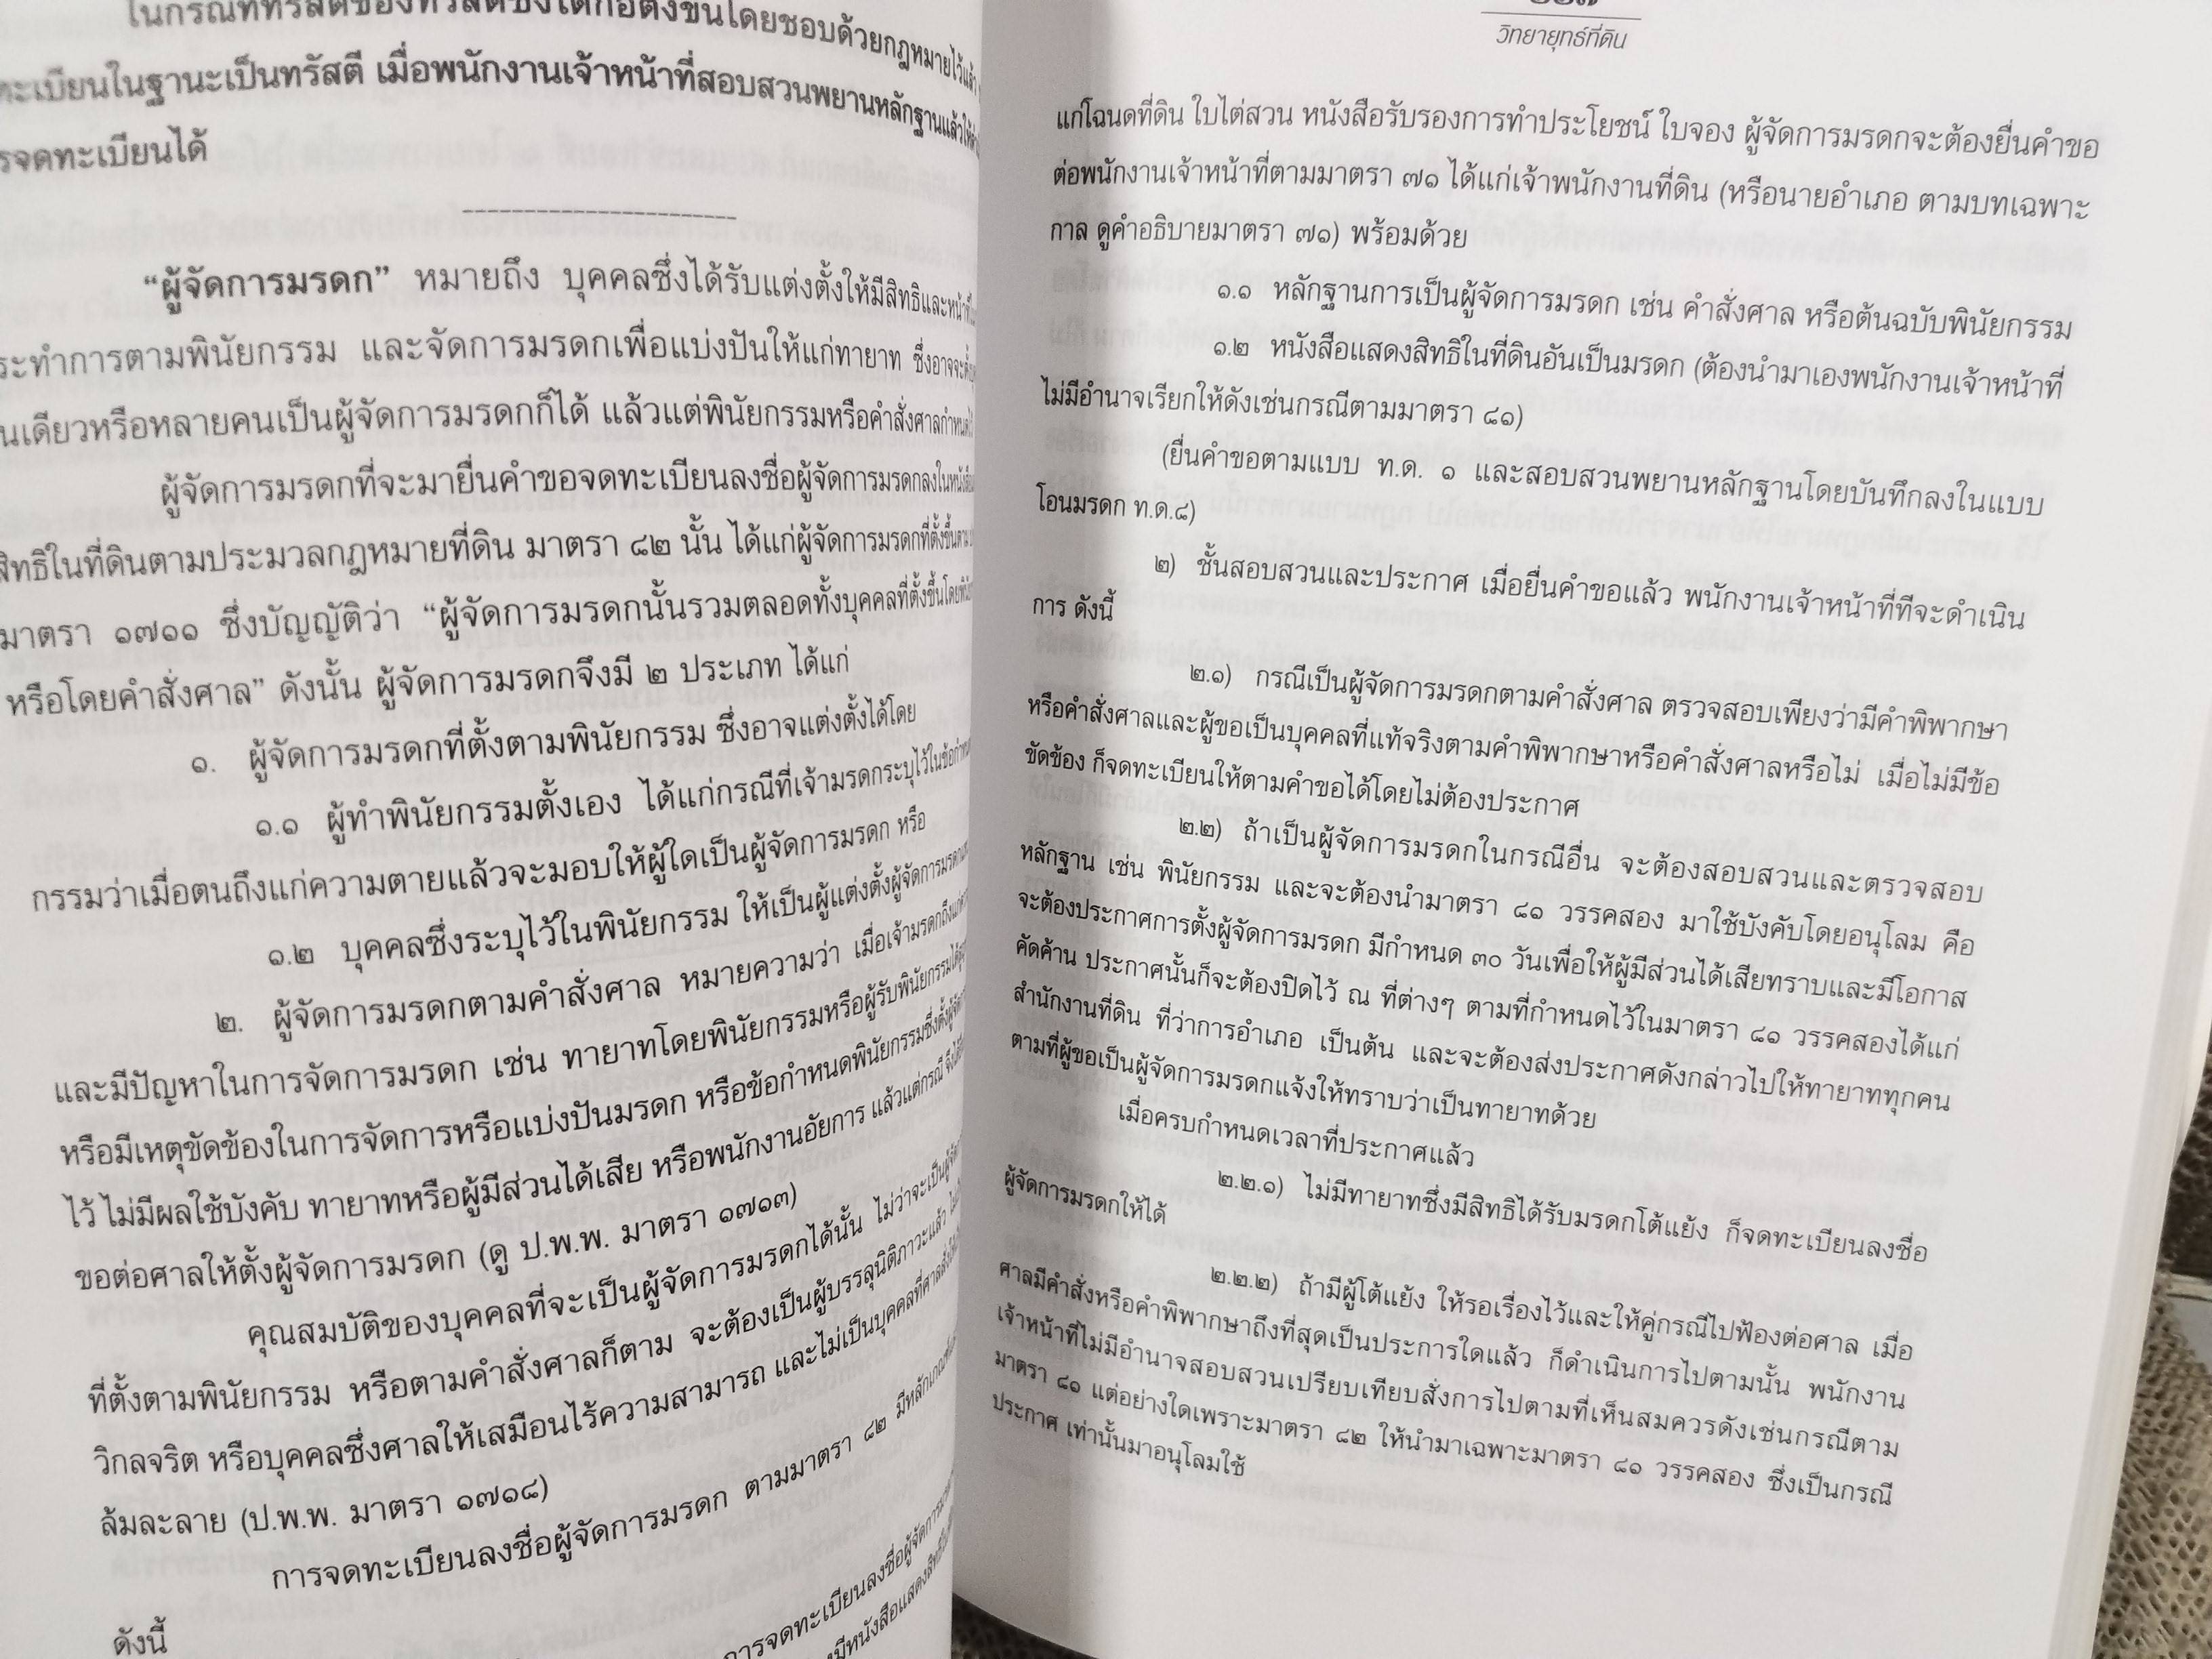 ทะเบียนในฐานะเป็นทรัสตี เมื่อพนักงานเจ้าหน้าที่สอบสวนพยานหลักฐานแล้วให้
รจดทะเบียนได้
“ผู้จัดการมรดก” หมายถึง บุคคลซึ่งได้รับแต่งตั้งให้มีสิทธิและหน้าที่
ระทำการตามพินัยกรรม และจัดการมรดกเพื่อแบ่งปันให้แก่ทายาท ซึ่งอาจจะ
นเดียวหรือหลายคนเป็นผู้จัดการมรดกก็ได้ แล้วแต่พินัยกรรมหรือคำสั่งศาลกำหนด
ผู้จัดการมรดกที่จะมายื่นคำขอจดทะเบียนลงชื่อผู้จัดการมรดกลงใน
สิทธิในที่ดินตามประมวลกฎหมายที่ดิน มาตรา ๘๒ นั้น ได้แก่ผู้จัดการมรดกที่ตั้งขึ้นตาม
มาตรา ๑๗๑๑ ซึ่งบัญญัติว่า “ผู้จัดการมรดกนั้นรวมตลอดทั้งบุคคลที่ตั้งขึ้นโดย
หรือโดยคำสั่งศาล” ดังนั้น ผู้จัดการมรดกจึงมี ๒ ประเภท ได้แก่
๑. ผู้จัดการมรดกที่ตั้งตามพินัยกรรม ซึ่งอาจแต่งตั้งได้โดย
๑.๑ ผู้ทำพินัยกรรมตั้งเอง ได้แก่กรณีที่เจ้ามรดกระบุไว้ในข้อกำหนด
กรรมว่าเมื่อตนถึงแก่ความตายแล้วจะมอบให้ผู้ใดเป็นผู้จัดการมรดก หรือ
๑.๒ บุคคลซึ่งระบุไว้ในพินัยกรรม ให้เป็นผู้แต่งตั้งผู้จัดการมรดก
๒. ผู้จัดการมรดกตามคำสั่งศาล หมายความว่า เมื่อเจ้ามรดกถึงแก่
และมีปัญหาในการจัดการมรดก เช่น ทายาทโดยพินัยกรรมหรือผู้รับพินัยกรรมได้
หรือมีเหตุขัดข้องในการจัดการหรือแบ่งปันมรดก หรือข้อกำหนดพินัยกรรมซึ่งตั้ง
ไว้ ไม่มีผลใช้บังคับ ทายาทหรือผู้มีส่วนได้เสีย หรือพนักงานอัยการ แล้วแต่กรณี
ขอต่อศาลให้ตั้งผู้จัดการมรดก (ดู ป.พ.พ. มาตรา ๑๗๑๓)
คุณสมบัติของบุคคลที่จะเป็นผู้จัดการมรดกได้นั้น ไม่ว่าจะเป็น
ที่ตั้งตามพินัยกรรม หรือตามคำสั่งศาลก็ตาม จะต้องเป็นผู้บรรลุนิติภาวะแล้ว
วิกลจริต หรือบุคคลซึ่งศาลให้เสมือนไร้ความสามารถ และไม่เป็นบุคคลที่ศาลสั่งให้
ล้มละลาย (ป.พ.พ. มาตรา ๑๗๑๘)
การจดทะเบียนลงชื่อผู้จัดการมรดก ตามมาตรา ๘๒ มีหลักเกณฑ์
ดังนี้
การจดทะเบียนลงชื่อผู้จัดการ
มีหนังสือแสดงสิทธิ
วิทยายุทธ์ที่ดิน
แก่โฉนดที่ดิน ใบไต่สวน หนังสือรับรองการทำประโยชน์ ใบจอง ผู้จัดการมรดกจะต้องยื่นคำขอ
ต่อพนักงานเจ้าหน้าที่ตามมาตรา ๗๑ ได้แก่เจ้าพนักงานที่ดิน (หรือนายอำเภอ ตามบทเฉพาะ
กาล ดูคำอธิบายมาตรา ๗๑) พร้อมด้วย
๑.๑ หลักฐานการเป็นผู้จัดการมรดก เช่น คำสั่งศาล หรือต้นฉบับพินัยกรรม
๑.๒ หนังสือแสดงสิทธิในที่ดินอันเป็นมรดก (ต้องนำมาเองพนักงานเจ้าหน้าที่
ไม่มีอำนาจเรียกให้ดังเช่นกรณีตามมาตรา ๘๑)
(ยื่นคำขอตามแบบ ท.ด. ๑ และสอบสวนพยานหลักฐานโดยบันทึกลงในแบบ
โอนมรดก ท.ด.๘)
๒) ชั้นสอบสวนและประกาศ เมื่อยื่นคำขอแล้ว พนักงานเจ้าหน้าที่ทีจะดำเนิน
การ ดังนี้
๒.๑) กรณีเป็นผู้จัดการมรดกตามคำสั่งศาล ตรวจสอบเพียงว่ามีคำพิพากษา
หรือคำสั่งศาลและผู้ขอเป็นบุคคลที่แท้จริงตามคำพิพากษาหรือคำสั่งศาลหรือไม่ เมื่อไม่มีข้อ
ขัดข้อง ก็จดทะเบียนให้ตามคำขอได้โดยไม่ต้องประกาศ
๒.๒) ถ้าเป็นผู้จัดการมรดกในกรณีอื่น จะต้องสอบสวนและตรวจสอบ
หลักฐาน เช่น พินัยกรรม และจะต้องนำมาตรา ๘๑ วรรคสอง มาใช้บังคับโดยอนุโลม คือ
จะต้องประกาศการตั้งผู้จัดการมรดก มีกำหนด ๓๐ วันเพื่อให้ผู้มีส่วนได้เสียทราบและมีโอกาส
คัดค้าน ประกาศนั้นก็จะต้องปิดไว้ ณ ที่ต่างๆ ตามที่กำหนดไว้ในมาตรา ๘๑ วรรคสองได้แก่
สำนักงานที่ดิน ที่ว่าการอำเภอ เป็นต้น และจะต้องส่งประกาศดังกล่าวไปให้ทายาททุกคน
ตามที่ผู้ขอเป็นผู้จัดการมรดกแจ้งให้ทราบว่าเป็นทายาทด้วย
เมื่อครบกำหนดเวลาที่ประกาศแล้ว
๒.๒.๑) ไม่มีทายาทซึ่งมีสิทธิได้รับมรดกโต้แย้ง ก็จดทะเบียนลงชื่อ
ผู้จัดการมรดกให้ได้
๒.๒.๒) ถ้ามีผู้โต้แย้ง ให้รอเรื่องไว้และให้คู่กรณีไปฟ้องต่อศาล เมื่อ
ศาลมีคำสั่งหรือคำพิพากษาถึงที่สุดเป็นประการใดแล้ว ก็ดำเนินการไปตามนั้น พนักงาน
เจ้าหน้าที่ไม่มีอำนาจสอบสวนเปรียบเทียบสั่งการไปตามที่เห็นสมควรดังเช่นกรณีตาม
มาตรา ๘๑ แต่อย่างใดเพราะมาตรา ๘๒ ให้นำมาเฉพาะมาตรา ๘๑ วรรคสอง ซึ่งเป็นกรณี
ประกาศ เท่านั้นมาอนุโลมใช้